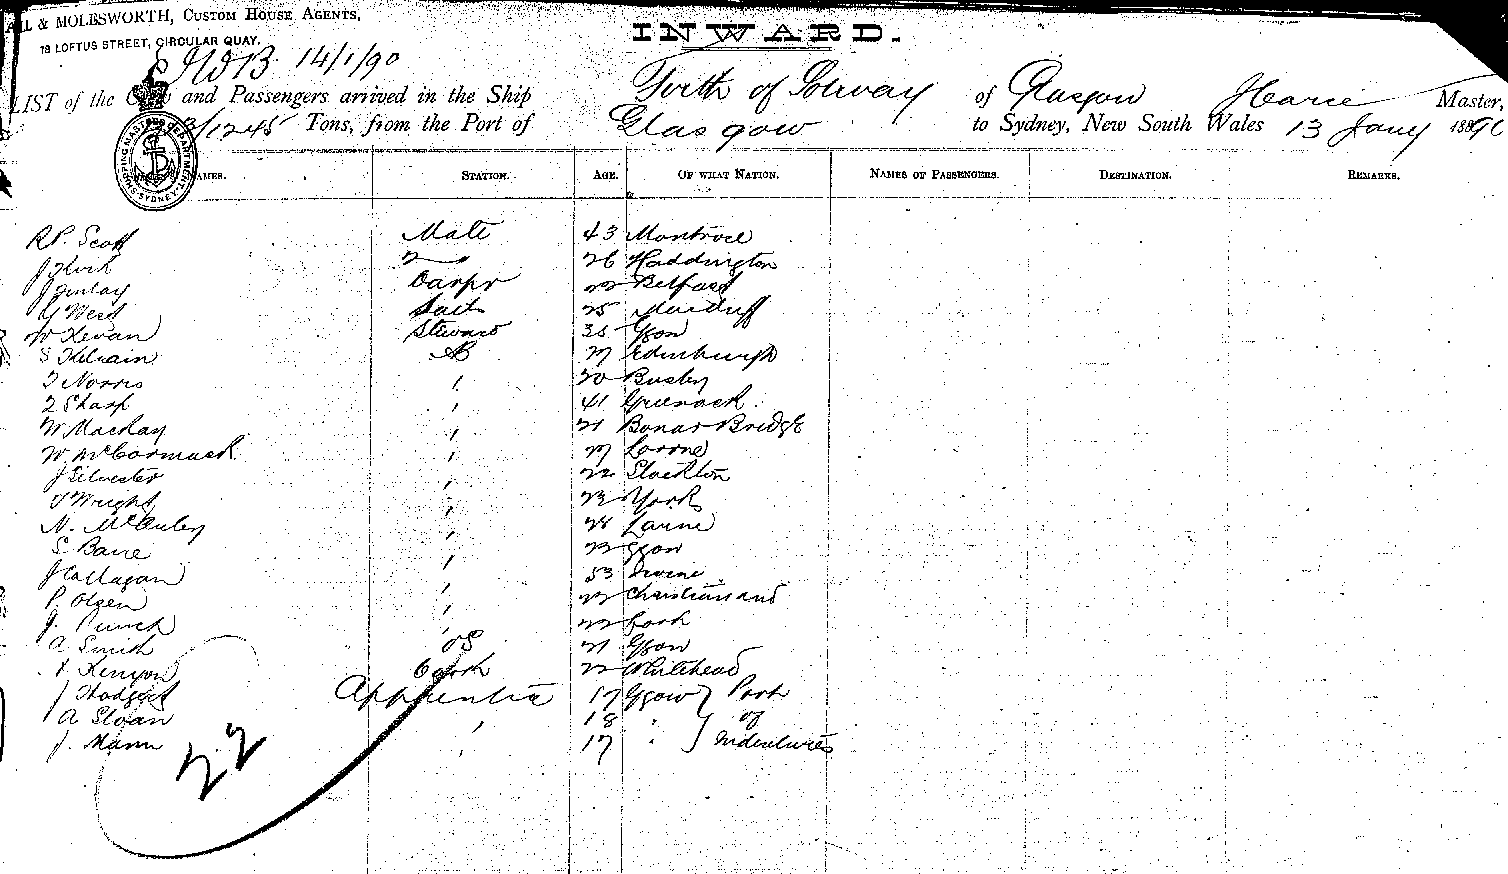 & MOLESWORTH, CUSTOM HOUSE AGENTS,
78 LOFTUS STREET, CIRCULAR QUAY.
14/1/90
INWARD.
LIST of the Crew and Passengers arrived in the Ship Firth of Solway of Glasgow Master,
1245 Tons, from the Port of Glasgow to Sydney, New South Wales 13 Jany 1890
SHIPPING MASTERS DEPARTMENT SYDNEY
NAMES. STATION. AGE. OF WHAT NATION. NAMES OF PASSENGERS. DESTINATION. REMARKS.
R.P. Scott Mate 43 Montrose
2 26 Haddington
J Finlay Carpr 22 Belfast
West Sails 25 Macduff
W Kevan Steward Ggow
S AB 27 Edinburgh
Norris " 20 Busby
Sharp " 41 Greenock
W Mackay " 21 Bonar Bridge
W McCormack " 27 Larne
J Silvester " 22 Stockton
Wright " 23 York
N. McAuley " 28 Larne
S " 23 Ggow
J Callagan " 53 Irvine
P. Olsen " 22 Christiansand
J. Punch " 22 Cork
A Smith OS 21 Ggow
Kenyon Cook 22 Whitehead
J Apprentice 17 Ggow } Port
A Sloan " 18 " } of
J. Mann " 17 " } Indentures
22